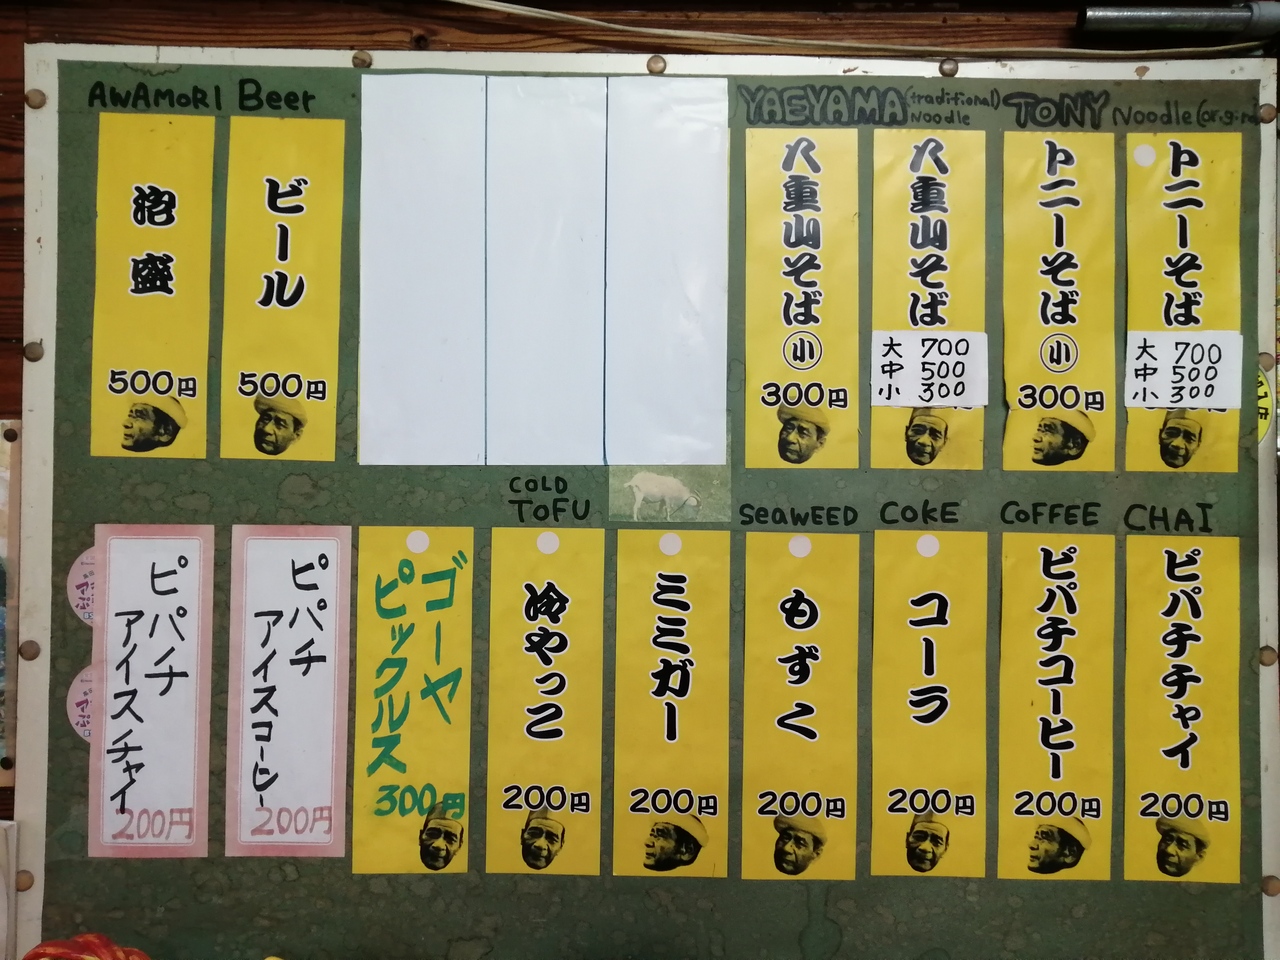 AWAMORI
泡盛
500円
Beer
ビール
500円
YAEYAMA (traditional) Noodle
八重山そば 小
300円
八重山そば
大 700
中 500
小 300
TONY Noodle
トニーそば 小
300円
トニーそば
大 700
中 500
小 300
ピパチ
アイスチャイ
200円
ピパチ
アイスコーヒー
200円
ゴーヤ
ピックルス
300円
COLD
TOFU
冷やっこ
200円
ミミガー
200円
SeaWEED
もずく
200円
COKE
コーラ
200円
COFFEE
ピパチコーヒー
200円
CHAI
ピパチチャイ
200円